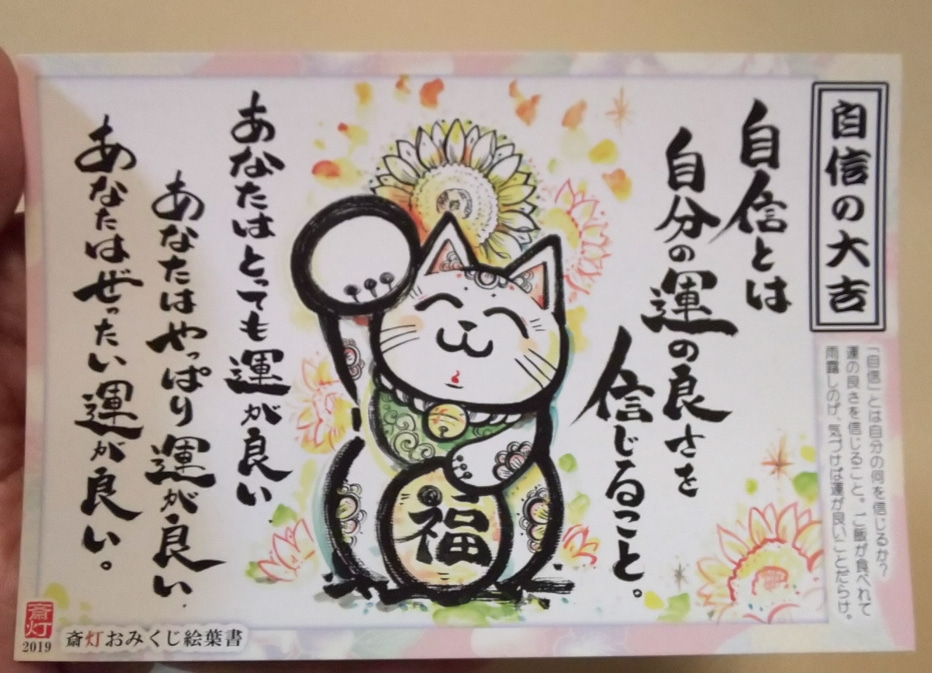 自信の大吉
「自信」とは自分の何を信じるか?
運の良さを信じること。ご飯が食べれて
雨露しのげ、気づけば運が良いことだらけ。
自信とは
自分の運の良さを
信じること。
福
あなたはとっても運が良い
あなたはやっぱり運が良い
あなたはぜったい運が良い。
斎灯
2019
斎灯おみくじ絵葉書